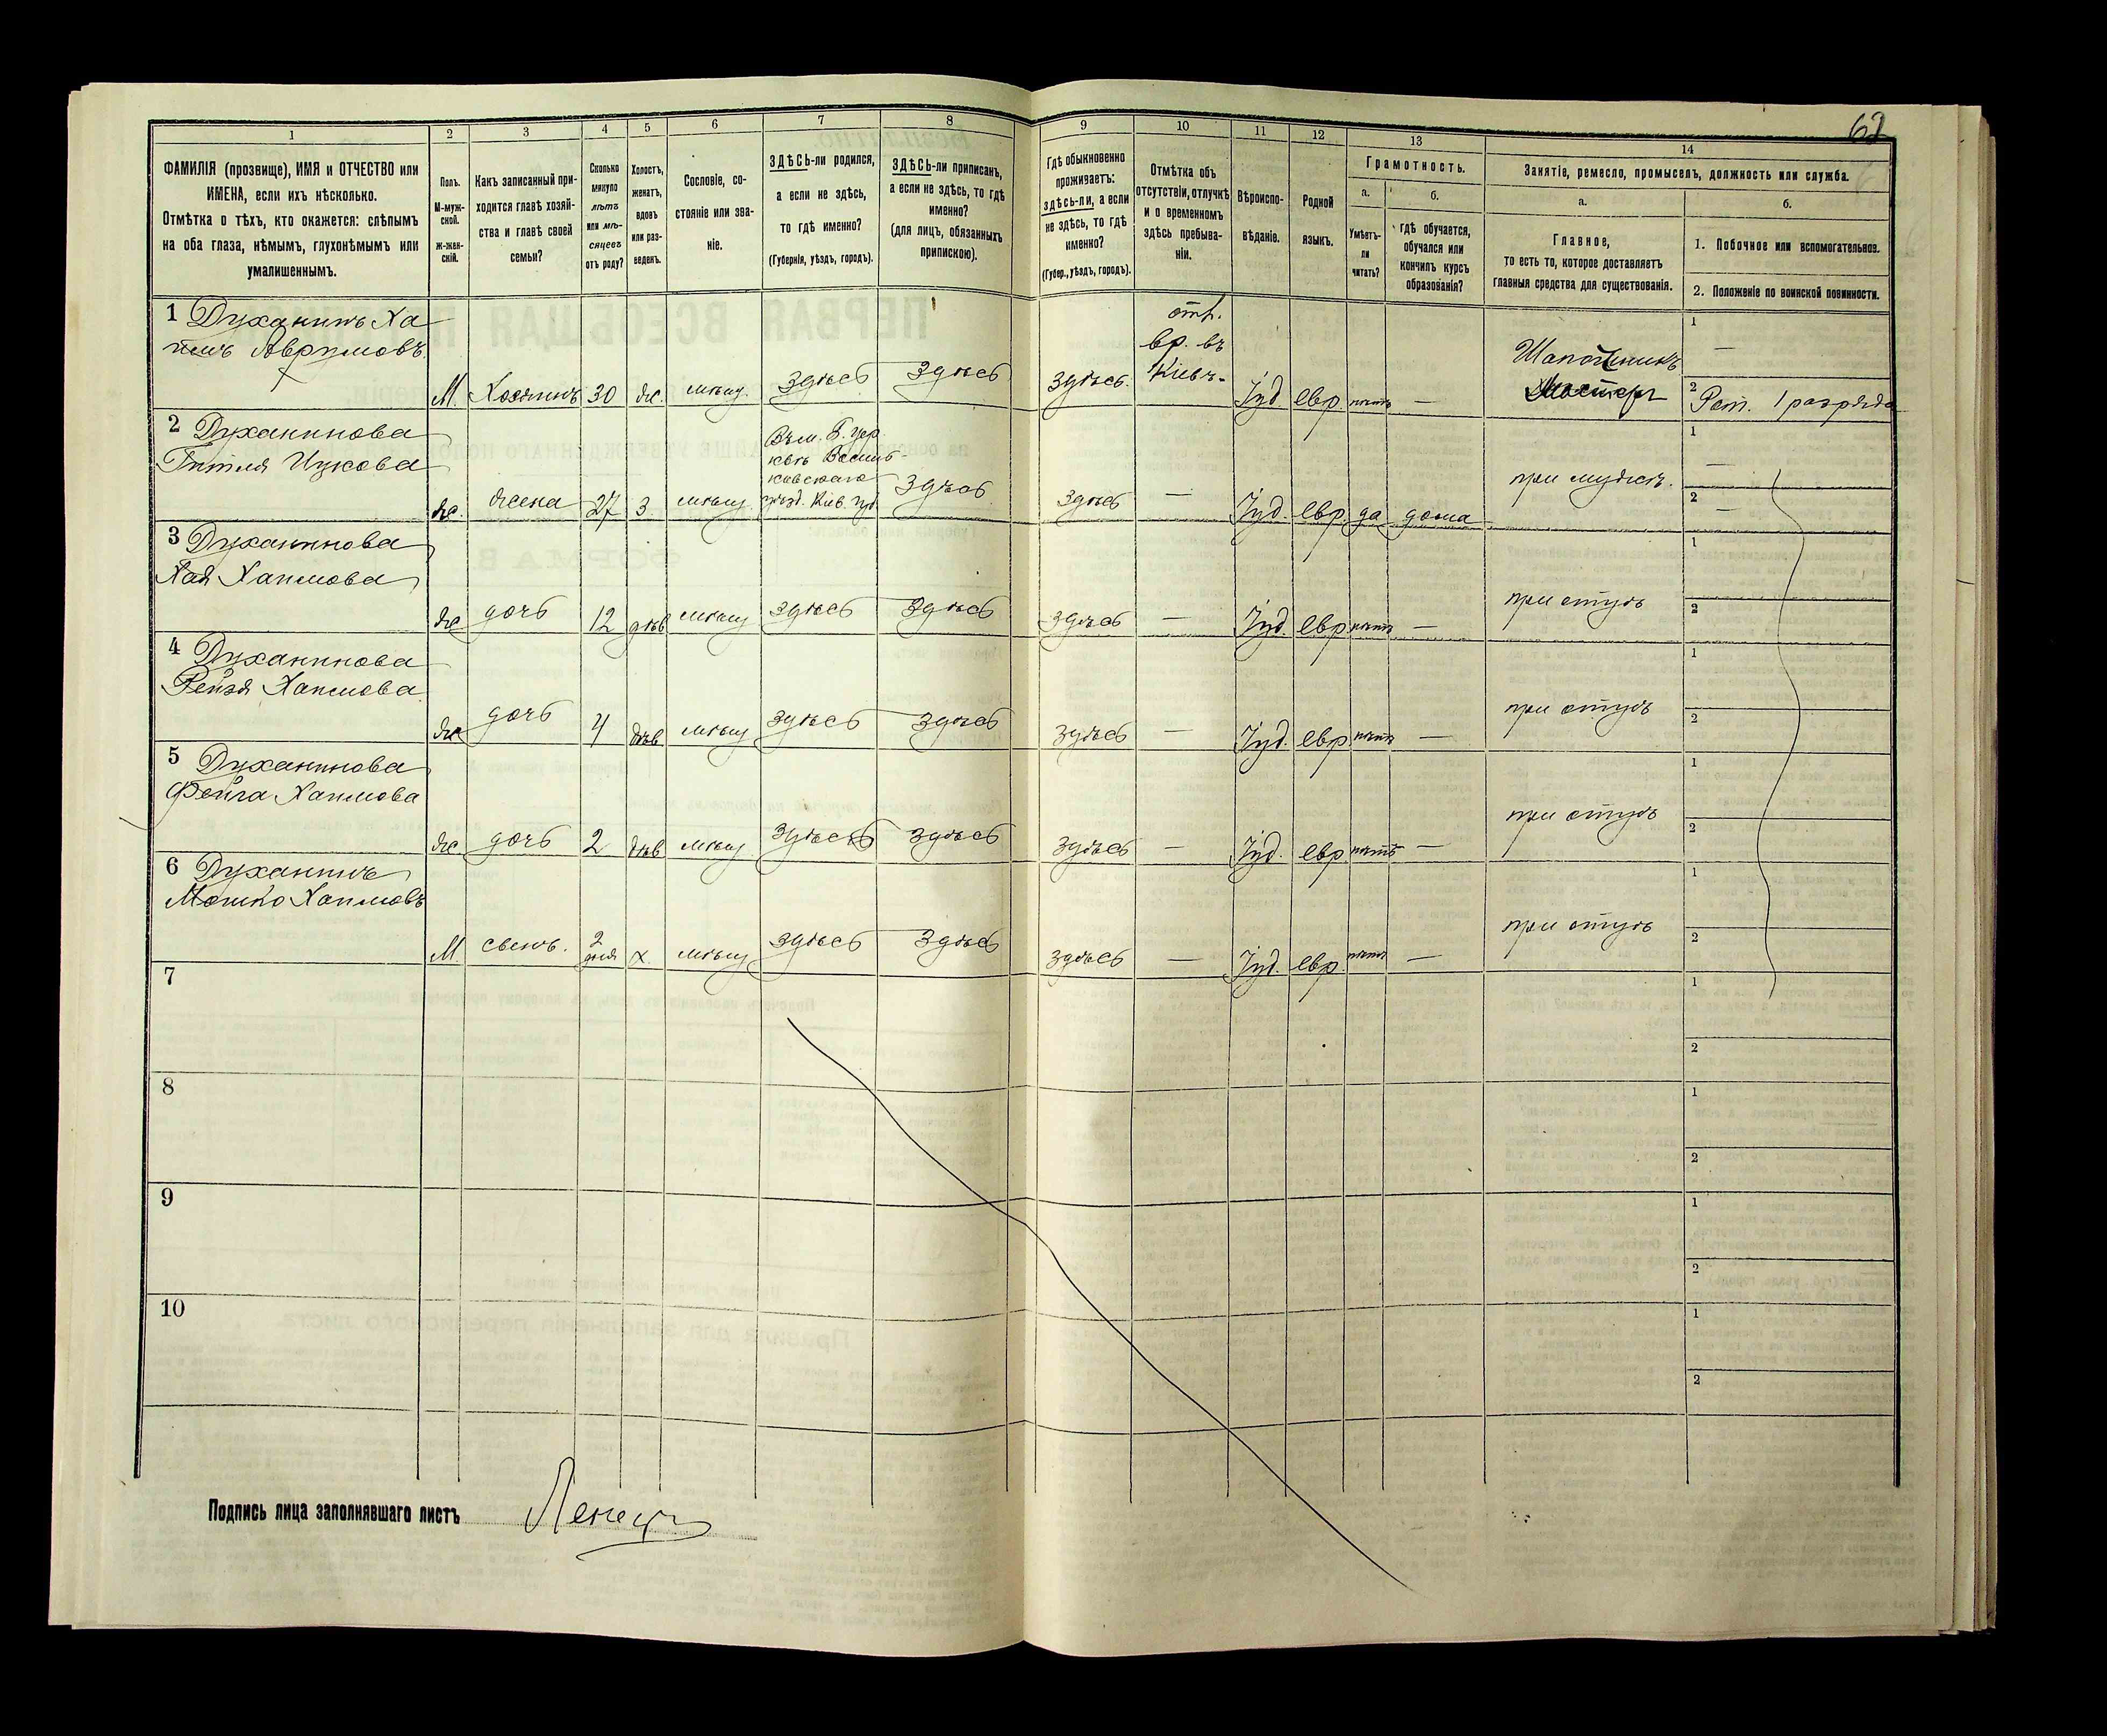 62
1
2
3
4
5
6
7
8
9
10
11
12
13
14
ФАМИЛІЯ (прозвище), ИМЯ и ОТЧЕСТВО или
ИМЕНА, если ихъ нѣсколько.
Отмѣтка о тѣхъ, кто окажется: слѣпымъ
на оба глаза, нѣмымъ, глухонѣмымъ или
умалишеннымъ.
Полъ.
М-муж-
ской.
Ж-жен-
скій.
Какъ записанный при-
ходится главѣ хозяй-
ства и главѣ своей
семьи?
Сколько
минуло
лѣтъ
или мѣ-
сяцевъ
отъ роду?
Холостъ,
женатъ,
вдовъ
или раз-
веденъ.
Сословіе, со-
стояніе или зва-
ніе.
ЗДѢСЬ-ли родился,
а если не здѣсь,
то гдѣ именно?
(Губернія, уѣздъ, городъ).
ЗДѢСЬ-ли приписанъ,
а если не здѣсь, то гдѣ
именно?
(для лицъ, обязанныхъ
припискою).
Гдѣ обыкновенно
проживаетъ:
здѣсь-ли, а если
не здѣсь, то гдѣ
именно?
(Губер., уѣздъ, городъ).
Отмѣтка объ
отсутствіи, отлучкѣ
и о временномъ
здѣсь пребыва-
ніи.
Вѣроиспо-
вѣданіе.
Родной
языкъ.
Грамотность.
а.
Умѣетъ-
ли
читать?
б.
гдѣ обучается,
обучался или
кончилъ курсъ
образованія?
Занятіе, ремесло, промыселъ, должность или служба.
а.
Главное,
то есть то, которое доставляетъ
главныя средства для существованія.
б.
1. Побочное или вспомогательное.
2. Положеніе по воинской повинности.
1 Духанинъ Ха
имъ Аврумовъ
М. Хозяинъ 30 ж. мѣщ. Здѣсь Здѣсь Здѣсь.
отл.
вр. въ
Кіевъ.
Іуд евр. нѣтъ —
Шапочникъ
1 —
2 Рат. 1 разряда
2 Духанинова
Гитля Ицкова
ж. жена 27 З. мѣщ.
Въ м. Б. Цер-
квь Василь-
ковскаго
уѣзд. Кіев. гу.
Здѣсь Здѣсь — Іуд. евр. да дома
при мужѣ.
1 —
2 —
3 Духанинова
Хая Хаимова
ж дочь 12 дѣв мѣщ Здѣсь Здѣсь Здѣсь — Іуд. евр нѣтъ —
при отцѣ
1
2
4 Духанинова
Рейзя Хаимова
ж дочь 4 дѣв мѣщ Здѣсь Здѣсь Здѣсь — Іуд. евр. нѣтъ —
при отцѣ
1
2
5 Духанинова
Фейга Хаимова
ж. дочь 2 дѣв мѣщ. Здѣсь Здѣсь Здѣсь — Іуд. евр нѣтъ —
при отцѣ
1
2
6 Духанинъ
Мошко Хаимовъ
М сынъ. 2
дня х. мѣщ Здѣсь Здѣсь Здѣсь — Іуд. евр. нѣтъ —
при отцѣ
1
2
7
1
2
8
1
2
9
1
2
10
1
2
Подпись лица заполнявшаго листъ